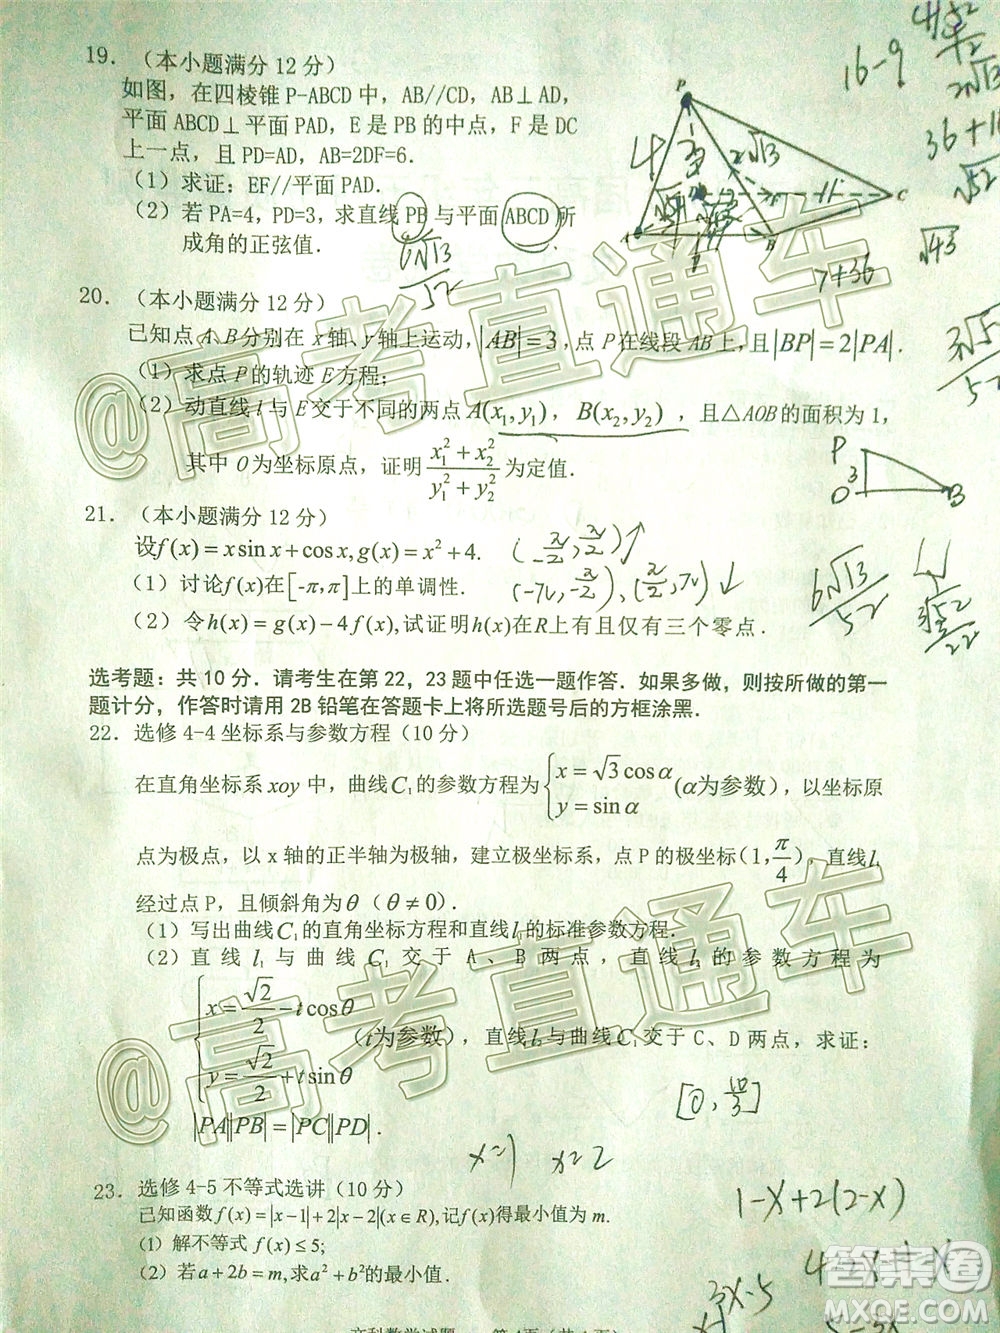 19. (本小题满分12分)
如图,在四棱锥P-ABCD中,AB//CD,AB⊥AD,
平面ABCD⊥平面PAD,E是PB的中点,F是DC
上一点,且PD=AD,AB=2DF=6.
(1)求证:EF//平面PAD.
(2)若PA=4,PD=3,求直线PB与平面ABCD所
成角的正弦值.
6√13/52
4 2√13
16-9
2√13
36+1
√52
√43
7+36
20. (本小题满分12分)
已知点A、B分别在x轴、y轴上运动,|AB|=3,点P在线段AB上,且|BP|=2|PA|.
(1)求点P的轨迹E方程;
(2)动直线l与E交于不同的两点A(x₁,y₁),B(x₂,y₂),且△AOB的面积为1,
其中O为坐标原点,证明(x₁²+x₂²)/(y₁²+y₂²)为定值.
P 3 O B
21. (本小题满分12分)
设f(x)=xsinx+cosx,g(x)=x²+4.
(1)讨论f(x)在[-π,π]上的单调性.
(2)令h(x)=g(x)-4f(x),试证明h(x)在R上有且仅有三个零点.
(-π/2,π/2)↑
(-π,-π/2),(π/2,π)↓
6√13/52
选考题:共10分.请考生在第22,23题中任选一题作答.如果多做,则按所做的第一
题计分,作答时请用2B铅笔在答题卡上将所选题号后的方框涂黑.
22. 选修4-4坐标系与参数方程(10分)
在直角坐标系xoy中,曲线C₁的参数方程为{x=√3cosα y=sinα(α为参数),以坐标原
点为极点,以x轴的正半轴为极轴,建立极坐标系,点P的极坐标(1,π/4),直线l₁
经过点P,且倾斜角为θ(θ≠0).
(1)写出曲线C₁的直角坐标方程和直线l₁的标准参数方程.
(2)直线l₁与曲线C₁交于A、B两点,直线l₂的参数方程为
{x=√2/2-tcosθ y=√2/2+tsinθ(t为参数),直线l₂与曲线C₁交于C、D两点,求证:
|PA||PB|=|PC||PD|.
[0,10/3]
x=1 x=2
23. 选修4-5不等式选讲(10分)
已知函数f(x)=|x-1|+2|x-2|(x∈R),记f(x)得最小值为m.
(1)解不等式f(x)≤5;
(2)若a+2b=m,求a²+b²的最小值.
1-x+2(2-x)
3x-5
@高考直通车
@高考直通车
答案卷
MXQE.COM